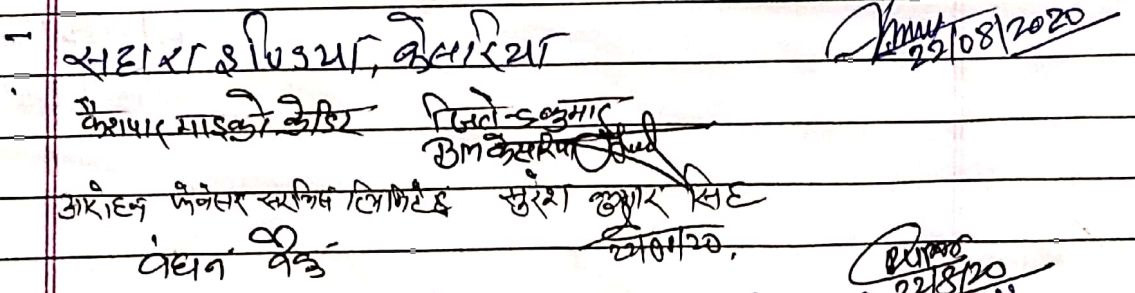 सहारा इण्डिया, केसरिया 22/08/2020
कैशपार माइक्रो केडिट जितेन्द्र कुमार
BM केसरिया
आरोहन फेनेसर सरभिस लिमिटेड सुरेश कुमार सिंह
बंधन बैंक 22/8/20